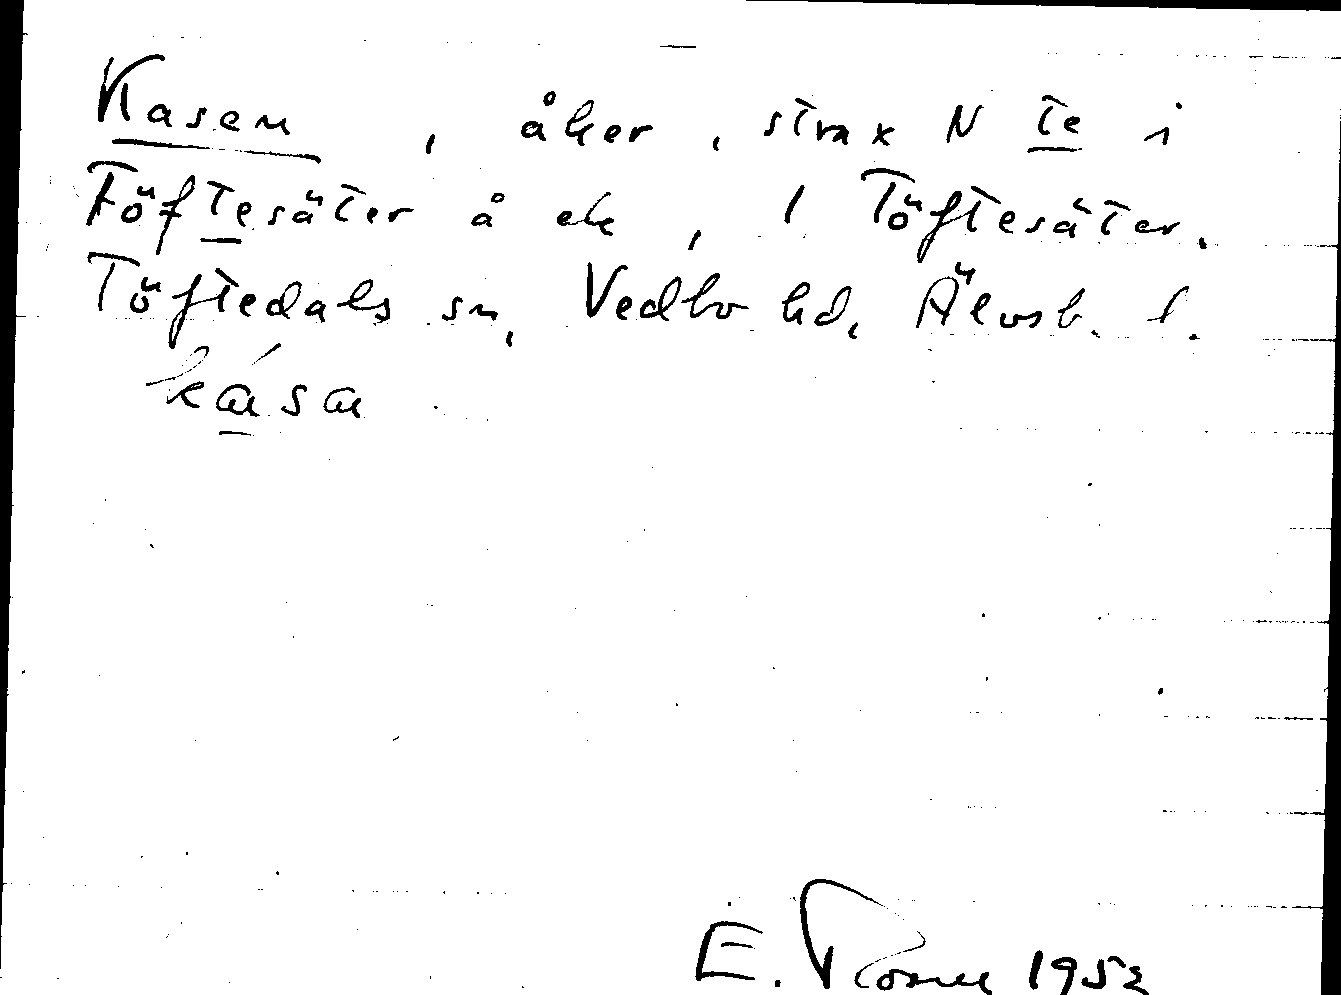 Kasen, åker, strax N te i
Töftesäter å ek, 1 Töftesäter.
Töftedals sn, Vedbo hd, Älvsb. l.
kása
E. 1952